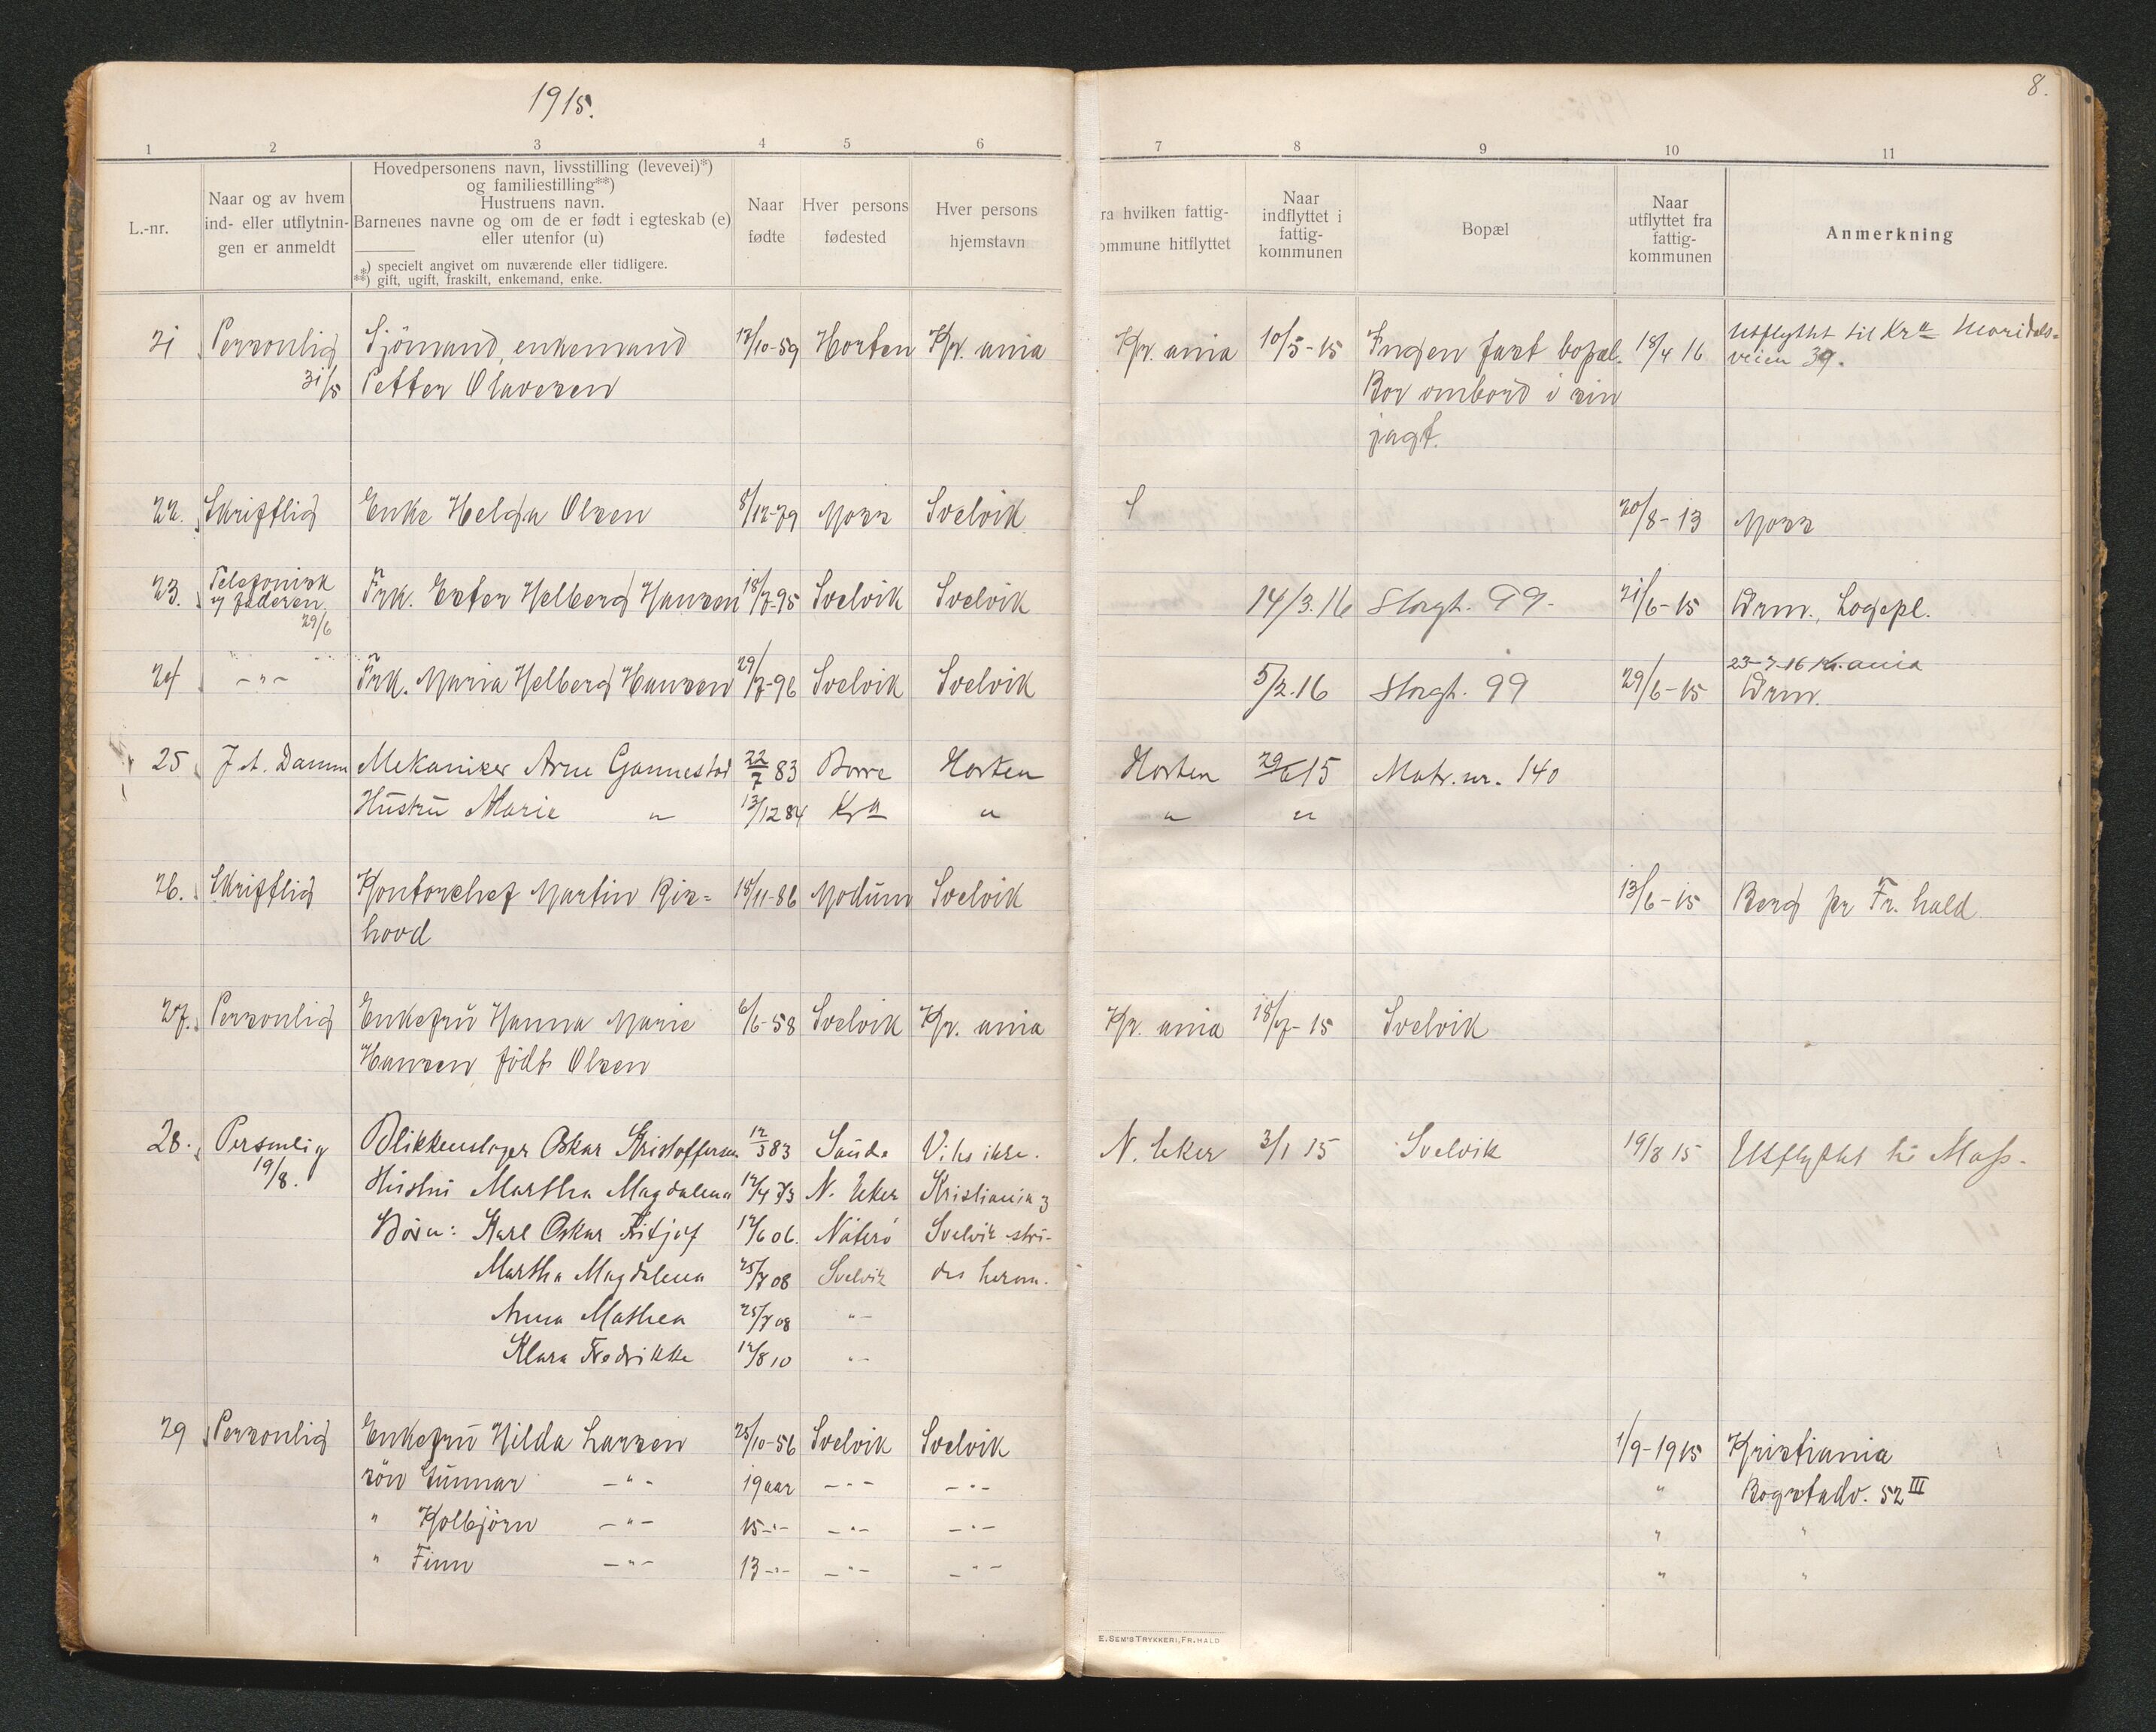 1915.
8.
1 2 3 4 5 6 7 8 9 10 11
L.-nr.
Naar og av hvem
ind- eller utflytnin-
gen er anmeldt
Hovedpersonens navn, livsstilling (levevei)*)
og familiestilling**)
Hustruens navn.
Barnenes navne og om de er født i egteskab (e)
eller utenfor (u)
*) specielt angivet om nuværende eller tidligere.
**) gift, ugift, fraskilt, enkemand, enke.
Naar
fødte
Hver persons
fødested
Hver persons
hjemstavn
ra hvilken fattig-
ommune hitflyttet
Naar
indflyttet i
fattig-
kommunen
Bopæl
Naar
utflyttet fra
fattig-
kommunen
Anmerkning
21 Personlig Sjömand, enkemand 12/10-59 Horten Kr. ania Kr. ania 10/5-15 Ingen fast bopæl. 18/4 16 Utflyttet til Kra Maridals-
31/5 Petter Olavesen Bor ombord i sin veien 39.
jagt.
22. Skriftlig Enke Helga Olsen 8/12-79 Moss Svelvik 20/8-13 Moss
23. Telefonisk Frk. Ester Helberg Hansen 18/7-95 Svelvik Svelvik 14/3.16 Storgt. 99- 21/6-15 Drm., Logepl.
af faderen
29/6
24 -"- Frk. Maria Helberg Hansen 29/7-96 Svelvik Svelvik 5/2.16 Storgt. 99 29/6-15 23-7-16 Kr.ania
Drm.
25 J. A. Damm Mekaniker Arne Gannestad 22/7 83 Borre Horten Horten 29/6 15 Matr. nr. 140
Hustru Marie " 13/12 84 Kra " " "
26. Skriftlig Kontorchef Martin Ris= 18/11-86 Modum Svelvik 13/6-15 Berg pr Fr. hald
hovd
27. Personlig Enkefru Hanna Marie 6/6-58 Svelvik Kr. ania Kr. ania 18/7-15 Svelvik
Hansen födt Olsen
28. Personlig Blikkenslager Oskar Kristoffersen 12/3 83 Sande Vites ikke. N. Eker 3/1 15 Svelvik 19/8 15 Utflyttet til Moss.
19/8. Hustru Martha Magdalena 12/4 73 N. Eker Kristiania og
Börn: Karl Oskar Fritjof 12/6 06. Nöterö Svelvik stri-
Martha Magdalena 25/7 08 Svelvik des herom.
Anna Mathea 25/7 08 "-
Klara Fredrikke 12/8 10 "-
29 Personlig Enkefru Hilda Larsen 25/10-56 Svelvik Svelvik 1/9-1915 Kristiania
sön Gunnar -"- 19 aar -"- -"- " Bogstadv. 52 III
" Kolbjörn -"- 15 -"- -"- -"- " "
" Finn -"- 13 -"- -"- -"- " "
E. SEM'S TRYKKERI, FR.HALD